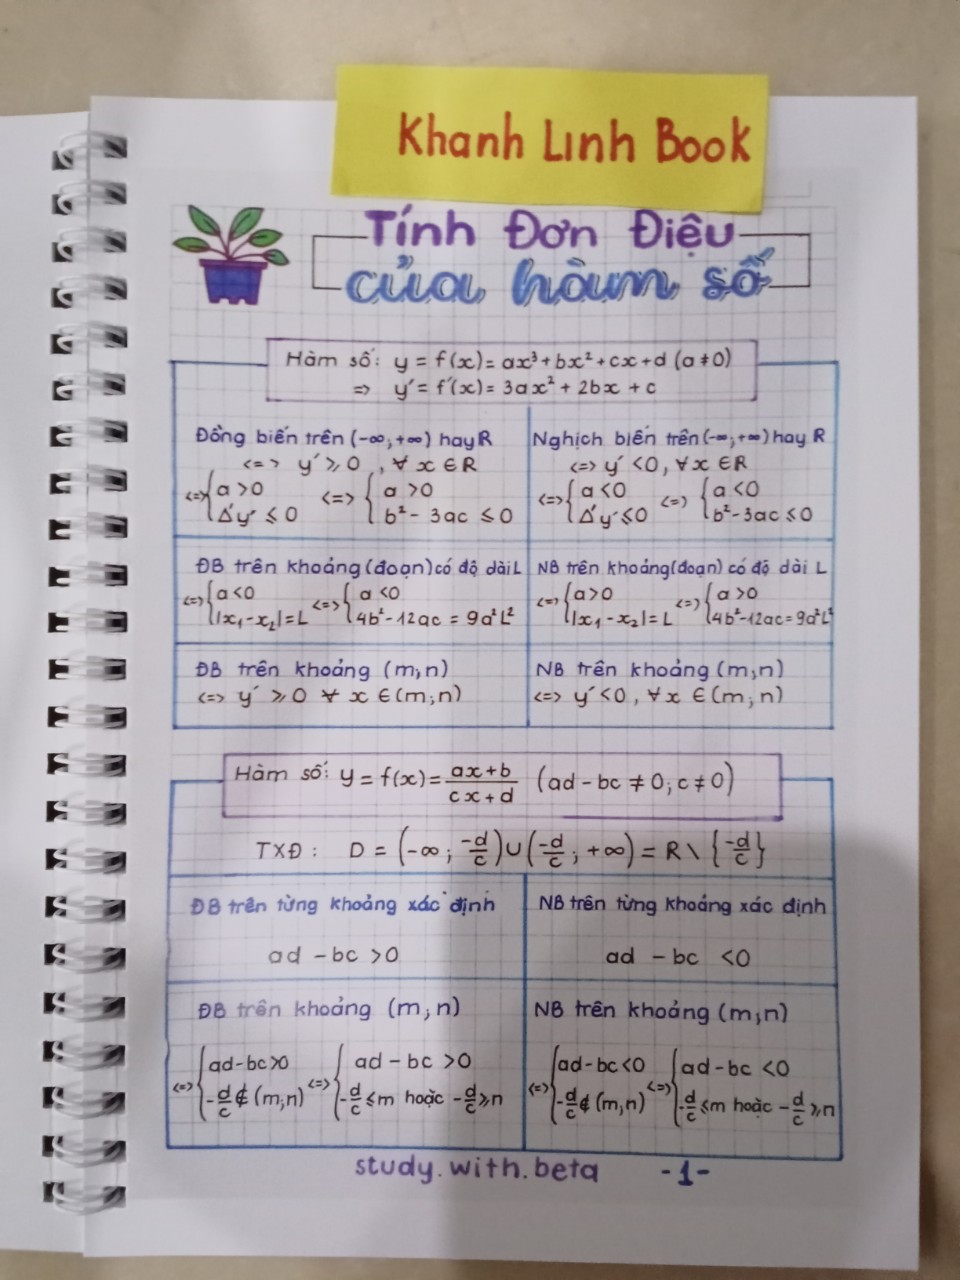 Khanh Linh Book
Tính Đơn Điệu
của hàm số
Hàm số: y = f(x) = ax³ + bx² + cx + d (a ≠ 0)
=> y' = f'(x) = 3ax² + 2bx + c
Đồng biến trên (-∞; +∞) hay R
<=> y' ≥ 0, ∀ x ∈ R
<=> { a > 0 ; Δ'y' ≤ 0 <=> { a > 0 ; b² - 3ac ≤ 0
Nghịch biến trên (-∞; +∞) hay R
<=> y' < 0, ∀ x ∈ R
<=> { a < 0 ; Δ'y' ≤ 0 <=> { a < 0 ; b² - 3ac ≤ 0
ĐB trên khoảng (đoạn) có độ dài L
<=> { a < 0 ; |x₁ - x₂| = L <=> { a < 0 ; 4b² - 12ac = 9a²L²
NB trên khoảng (đoạn) có độ dài L
<=> { a > 0 ; |x₁ - x₂| = L <=> { a > 0 ; 4b² - 12ac = 9a²L²
ĐB trên khoảng (m; n)
<=> y' ≥ 0 ∀ x ∈ (m; n)
NB trên khoảng (m; n)
<=> y' < 0, ∀ x ∈ (m; n)
Hàm số: y = f(x) = (ax + b)/(cx + d) (ad - bc ≠ 0; c ≠ 0)
TXĐ: D = (-∞; -d/c) ∪ (-d/c; +∞) = R \ {-d/c}
ĐB trên từng khoảng xác định
ad - bc > 0
NB trên từng khoảng xác định
ad - bc < 0
ĐB trên khoảng (m; n)
<=> { ad - bc > 0 ; -d/c ∉ (m; n) <=> { ad - bc > 0 ; -d/c ≤ m hoặc -d/c ≥ n
NB trên khoảng (m; n)
<=> { ad - bc < 0 ; -d/c ∉ (m; n) <=> { ad - bc < 0 ; -d/c ≤ m hoặc -d/c ≥ n
study.with.beta -1-